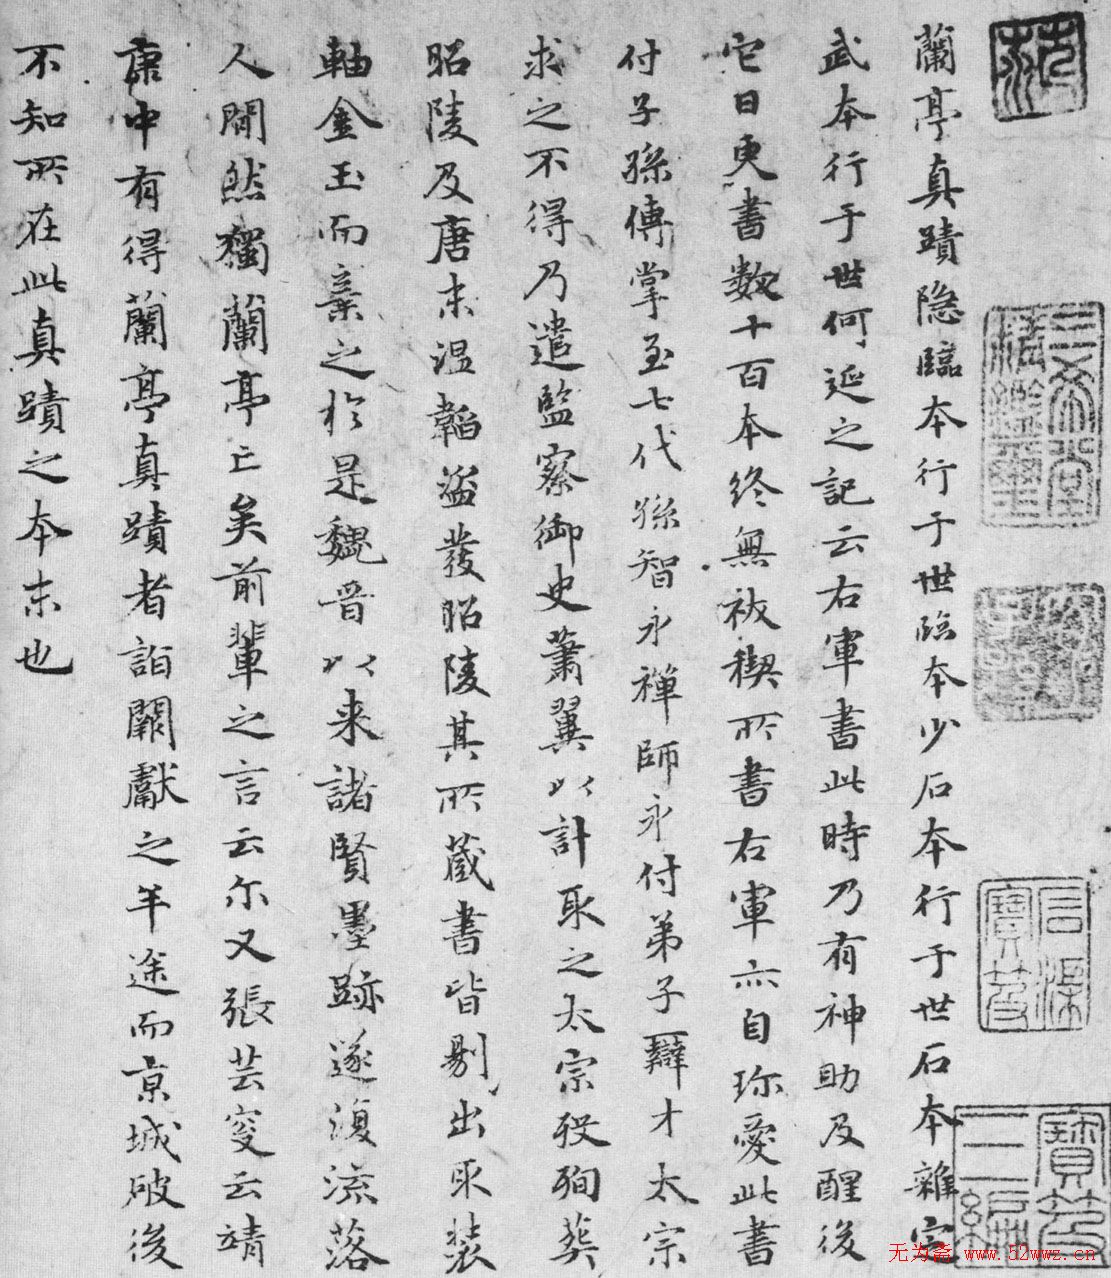 蘭亭真蹟隐臨本行于世臨本少石本行于世石本雜定
武本行于世何延之記云右軍書此時乃有神助及醒後
它日更書数十百本終無祓禊所書右軍亦自珎愛此書
付子孫傳掌至七代孫智永禪師永付弟子辯才太宗
求之不得乃遣監察御史蕭翼以計取之太宗殁殉葬
昭陵及唐末温韜盗發昭陵其所蔵書皆剔出取装
軸金玉而棄之於是魏晉以来諸賢墨跡遂復流落
人間然獨蘭亭亡矣前輩之言云尔又張芸叟云靖
康中有得蘭亭真蹟者詣闕獻之半途而京城破後
不知所在此真蹟之本末也
三希堂精鑑璽
宜子孫
石渠寶笈
寶笈三編
无为斋 www.52wwz.cn